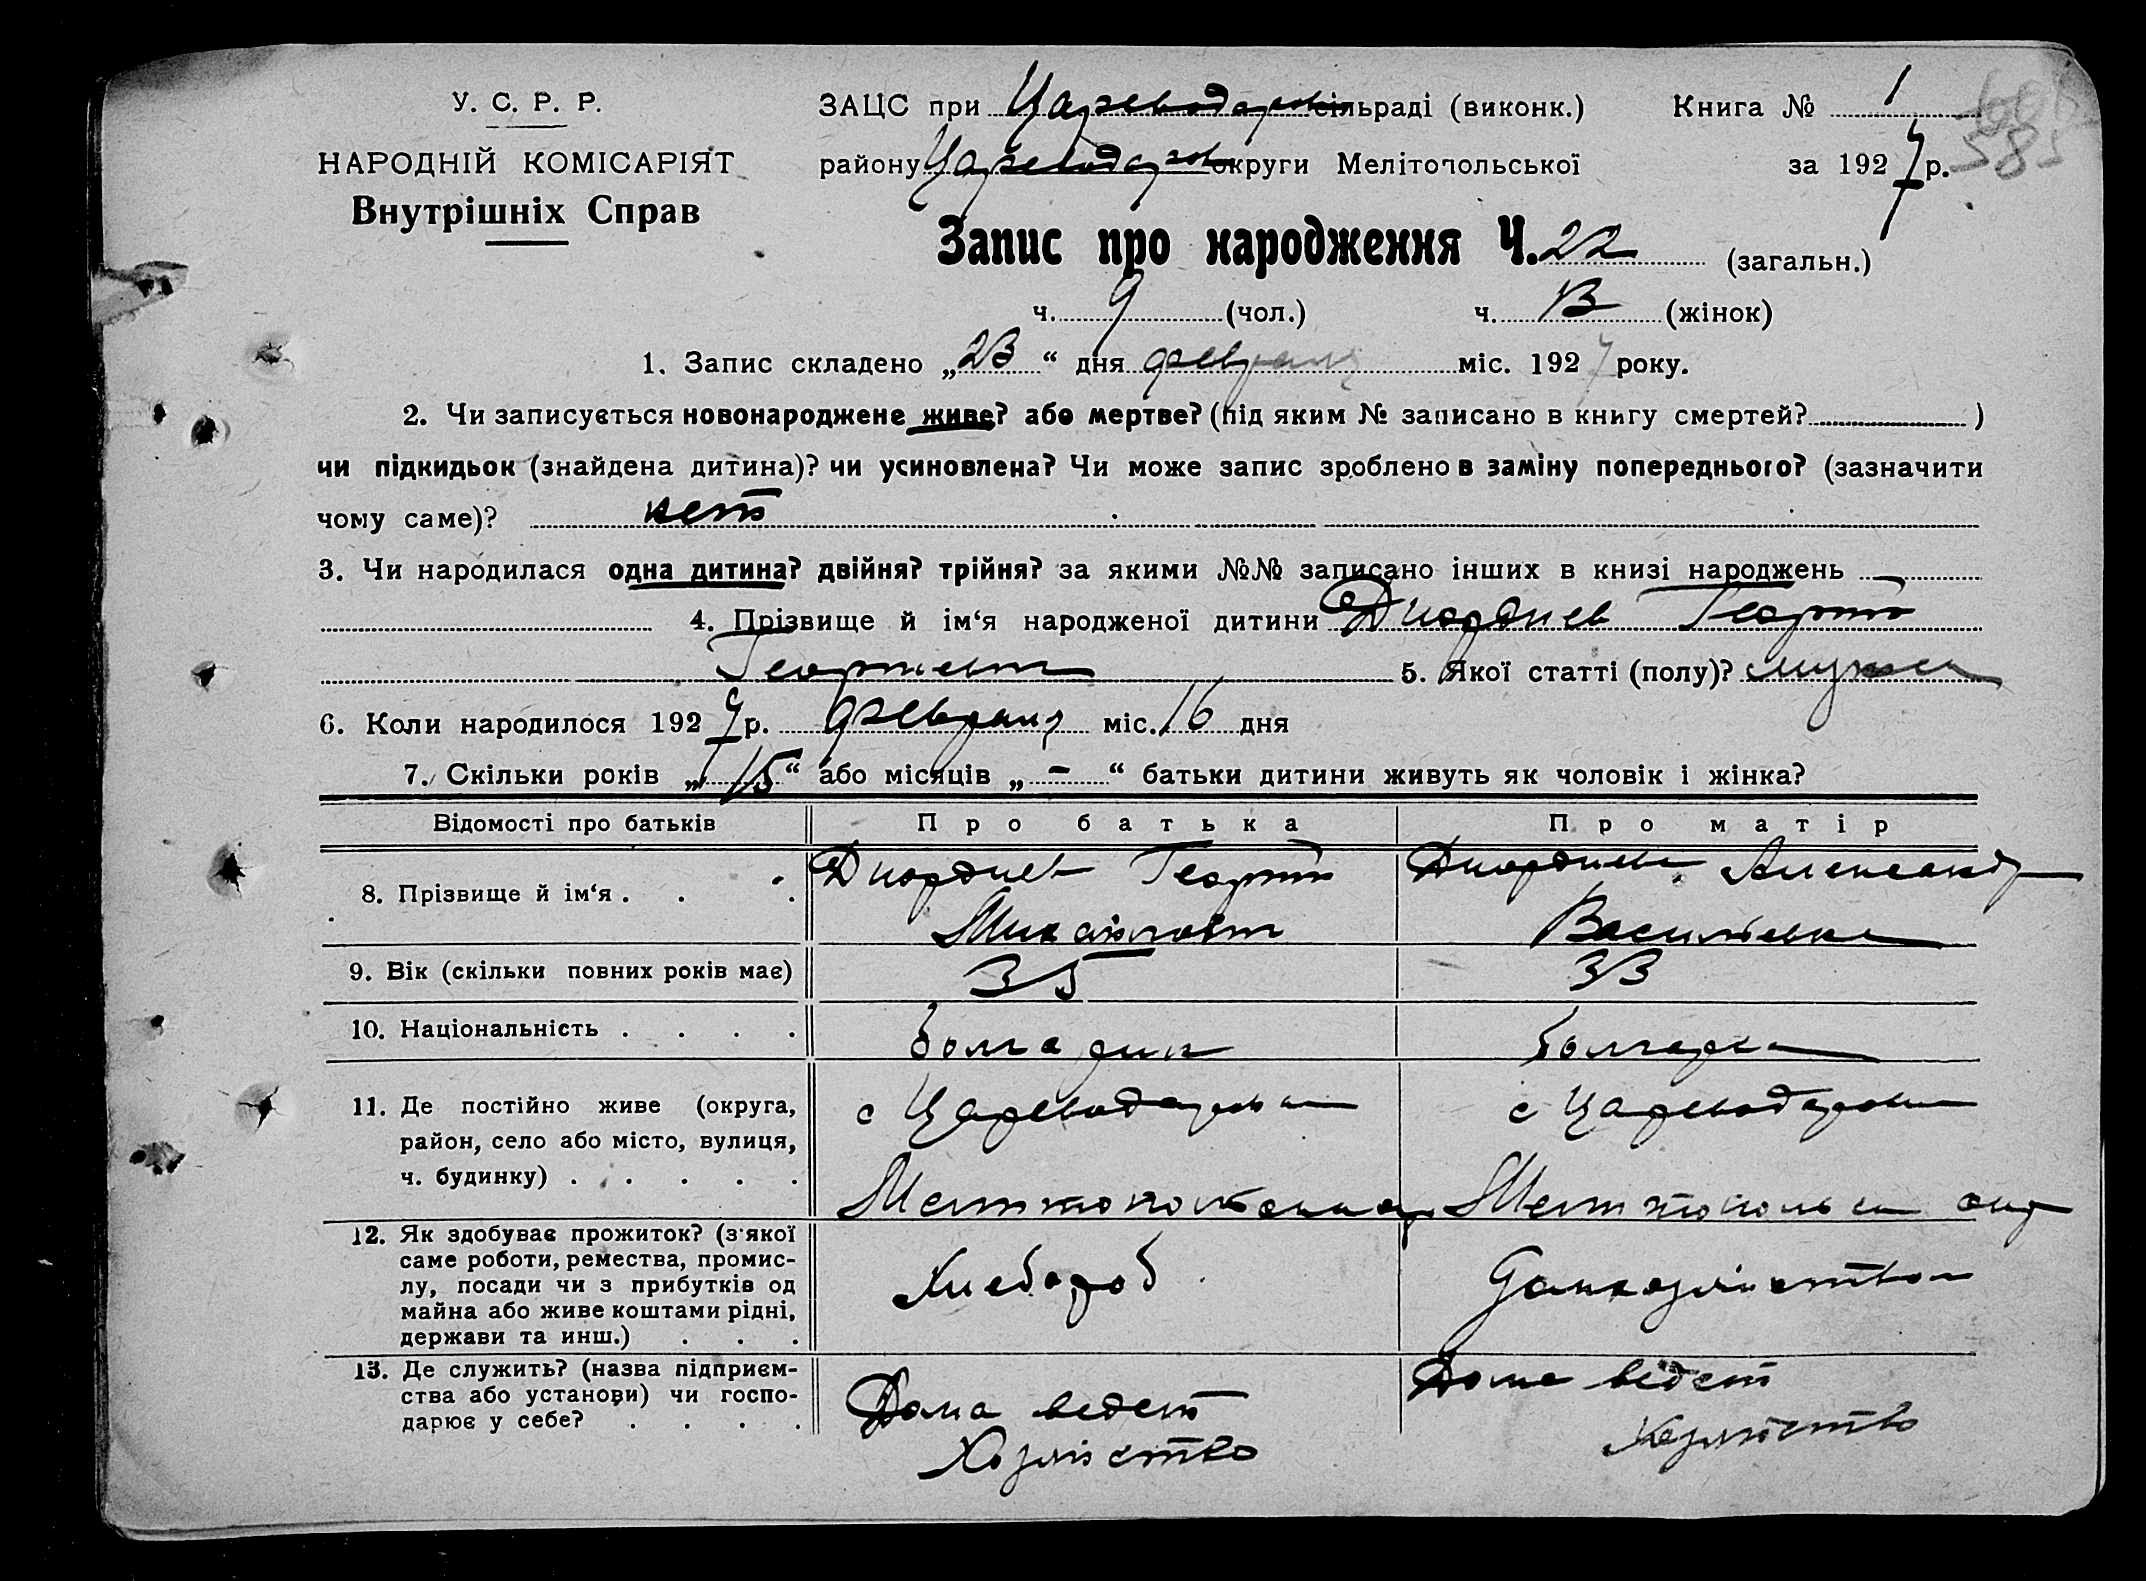 У. С. Р. Р.
НАРОДНІЙ КОМІСАРІЯТ
Внутрішніх Справ
ЗАЦС при Цареводаров сільраді (виконк.) Книга № 1
району Цареводаров округи Мелітопольської за 1927 р.
585
Запис про народження Ч. 22 (загальн.)
ч. 9 (чол.) ч. 13 (жінок)
1. Запис складено „23“ дня февраля міс. 1927 року.
2. Чи записується новонароджене живе? або мертве? (під яким № записано в книгу смертей? )
чи підкидьок (знайдена дитина)? чи усиновлена? Чи може запис зроблено в заміну попереднього? (зазначити
чому саме)? нет
3. Чи народилася одна дитина? двійня? трійня? за якими №№ записано інших в книзі народжень —
4. Прізвище й ім‘я народженої дитини Диордиев Георгий
Георгиевич 5. Якої статті (полу)?
6. Коли народилося 1927 р. февраля міс. 16 дня
7. Скільки років „15“ або місяців „ - “ батьки дитини живуть як чоловік і жінка?
Відомості про батьків Про батька Про матір
8. Прізвище й ім‘я . . . Диордиев Георгий Диордиева Александра
Михайлович Васильевна
9. Вік (скільки повних років має) 35 33
10. Національність . . . . болгарин болгарка
11. Де постійно живе (округа, с Цареводаровка с Цареводаровка
район, село або місто, вулиця,
ч. будинку) . . . . . Мелитопольский окр Мелитопольск окр
12. Як здобуває прожиток? (з'якої
саме роботи, ремества, промис-
лу, посади чи з прибутків од Хлебороб
майна або живе коштами рідні,
держави та инш.) . . .
13. Де служить? (назва підприєм- Дома ведет
ства або установи) чи госпо- Дома ведет
дарює у себе? . . . . Хозяйство Хозяйство